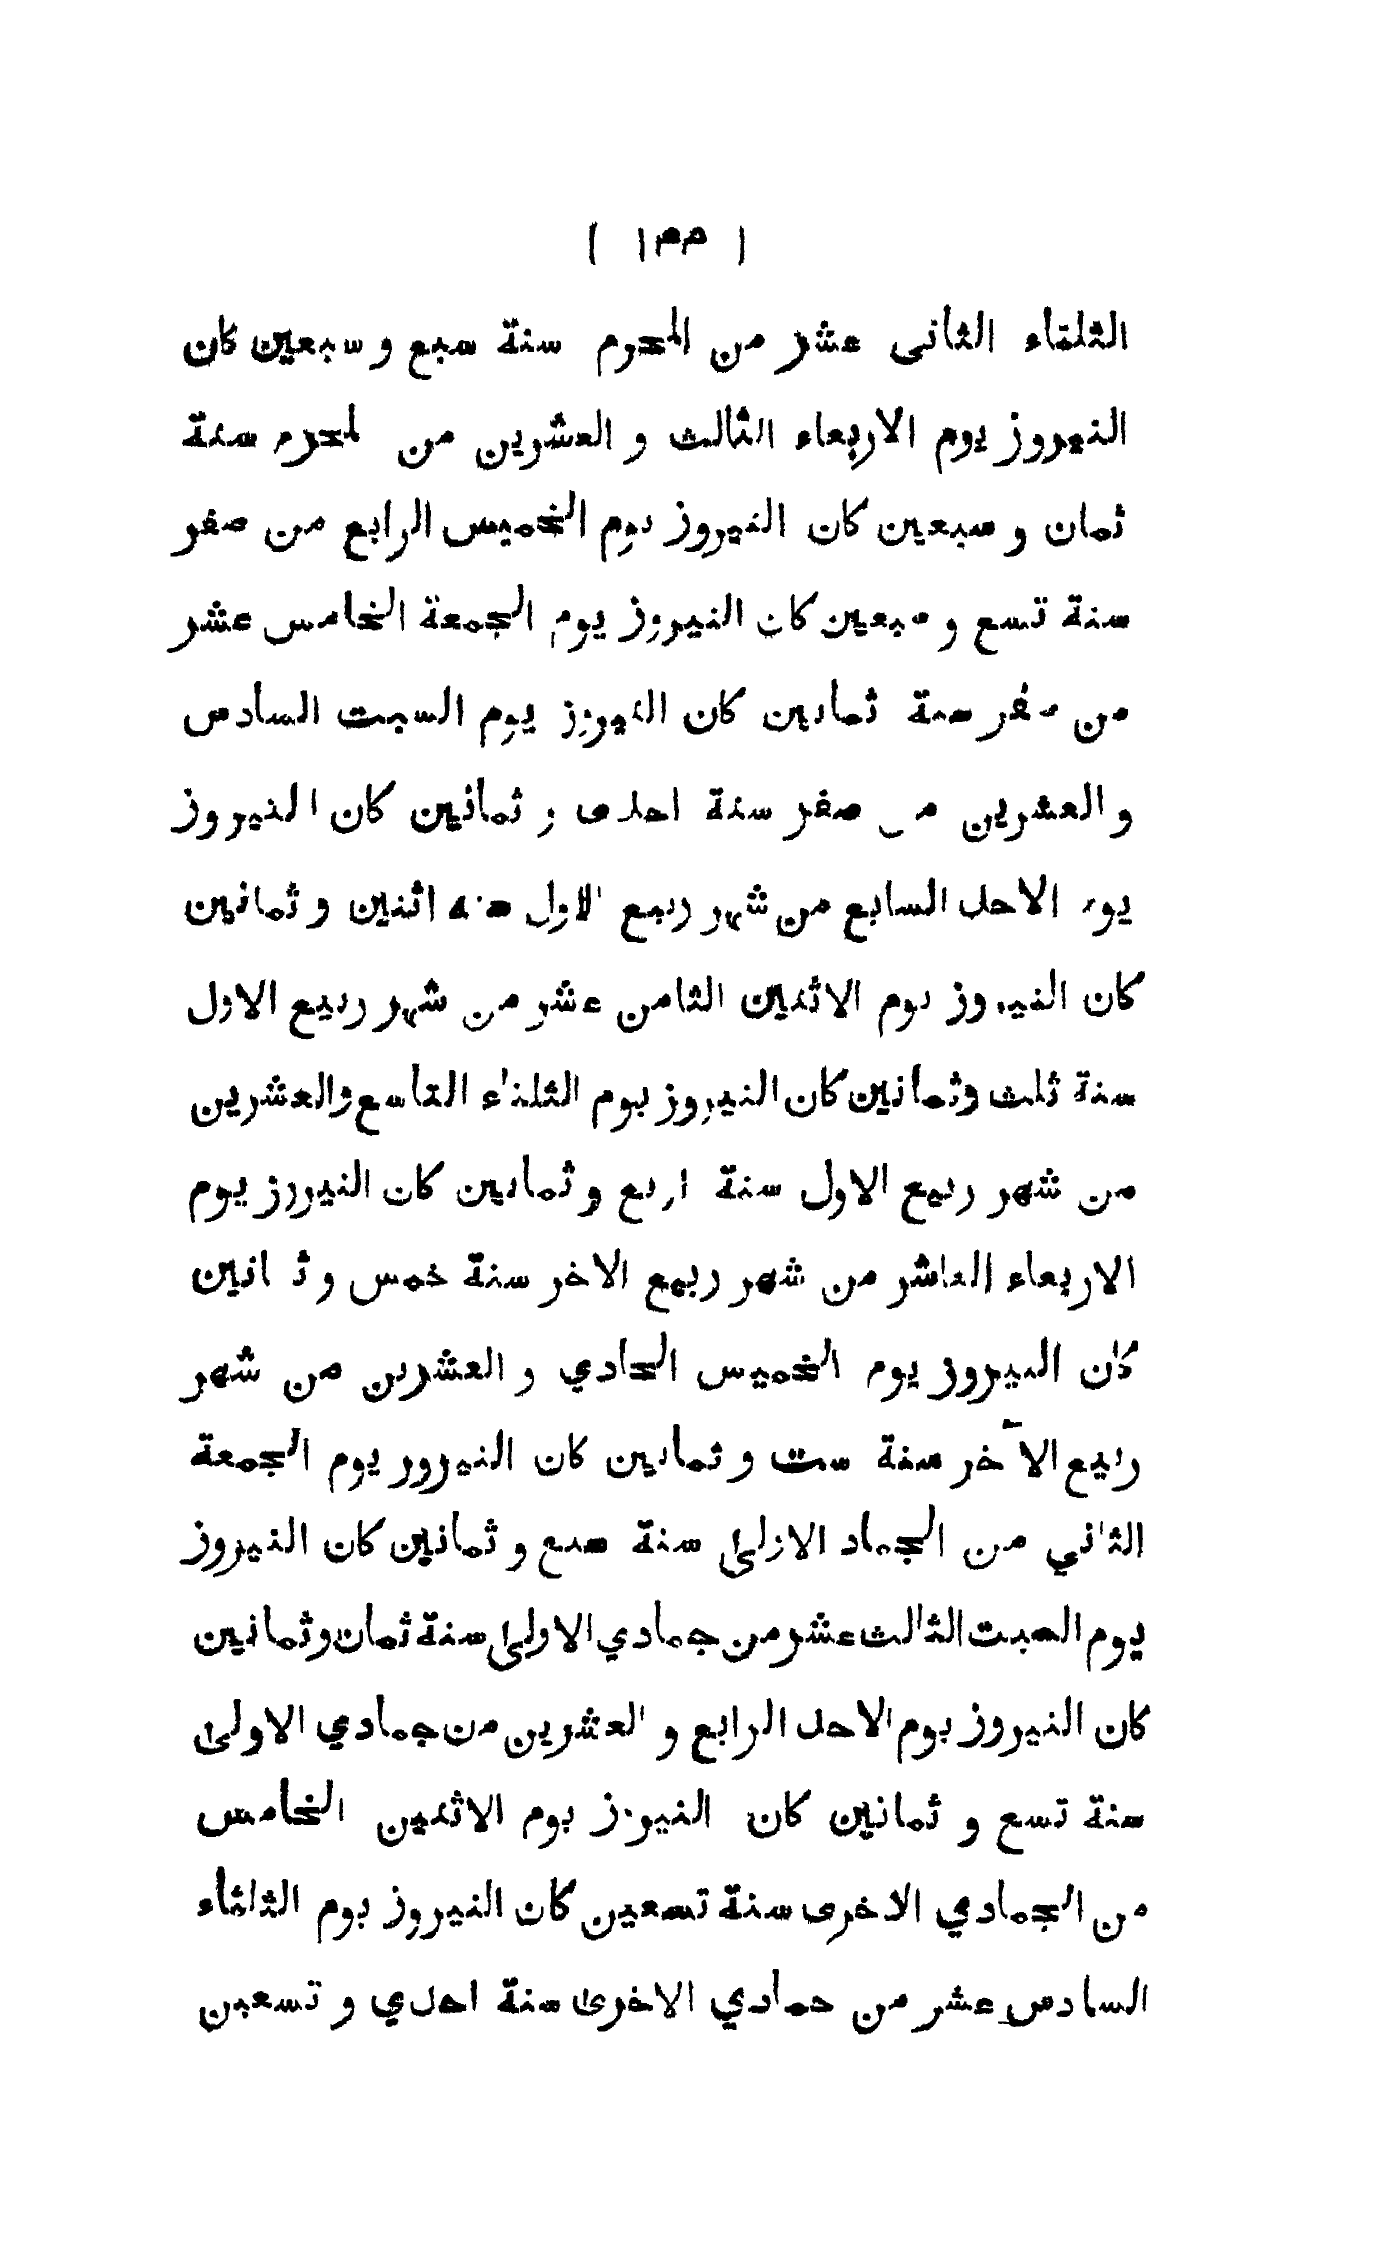 ( ١٣٣ )
الثلثاء الثانى عشر من المحرم سنة سبع و سبعين كان
النيروز يوم الاربعاء الثالث و العشرين من لمحرم سنة
ثمان و سبعين كان النيروز يوم الخميس الرابع من صفر
سنة تسع و سبعين كان النيروز يوم الجمعة الخامس عشر
من صفر سنة ثمانين كان النيروز يوم السبت السادس
و العشرين من صفر سنة احدى و ثمانين كان النيروز
يوم الاحد السابع من شهر ربيع الاول سنه اثنين و ثمانين
كان النيروز يوم الاثنين الثامن عشر من شهر ربيع الاول
سنة ثلث وثمانين كان النيروز يوم الثلثاء التاسع والعشرين
من شهر ربيع الاول سنة اربع و ثمانين كان النيروز يوم
الاربعاء العاشر من شهر ربيع الاخر سنة خمس و ثمانين
كان النيروز يوم الخميس الحادي و العشرين من شهر
ربيع الآخر سنة ست و ثمانين كان النيروز يوم الجمعة
الثاني من الجماد الاولىٰ سنة سبع و ثمانين كان النيروز
يوم السبت الثالث عشر من جمادي الاولىٰ سنة ثمان وثمانين
كان النيروز يوم الاحد الرابع و العشرين من جمادي الاولىٰ
سنة تسع و ثمانين كان النيروز يوم الاثنين الخامس
من الجمادي الاخرى سنة تسعين كان النيروز يوم الثلثاء
السادس عشر من جمادي الاخرىٰ سنة احدي و تسعين